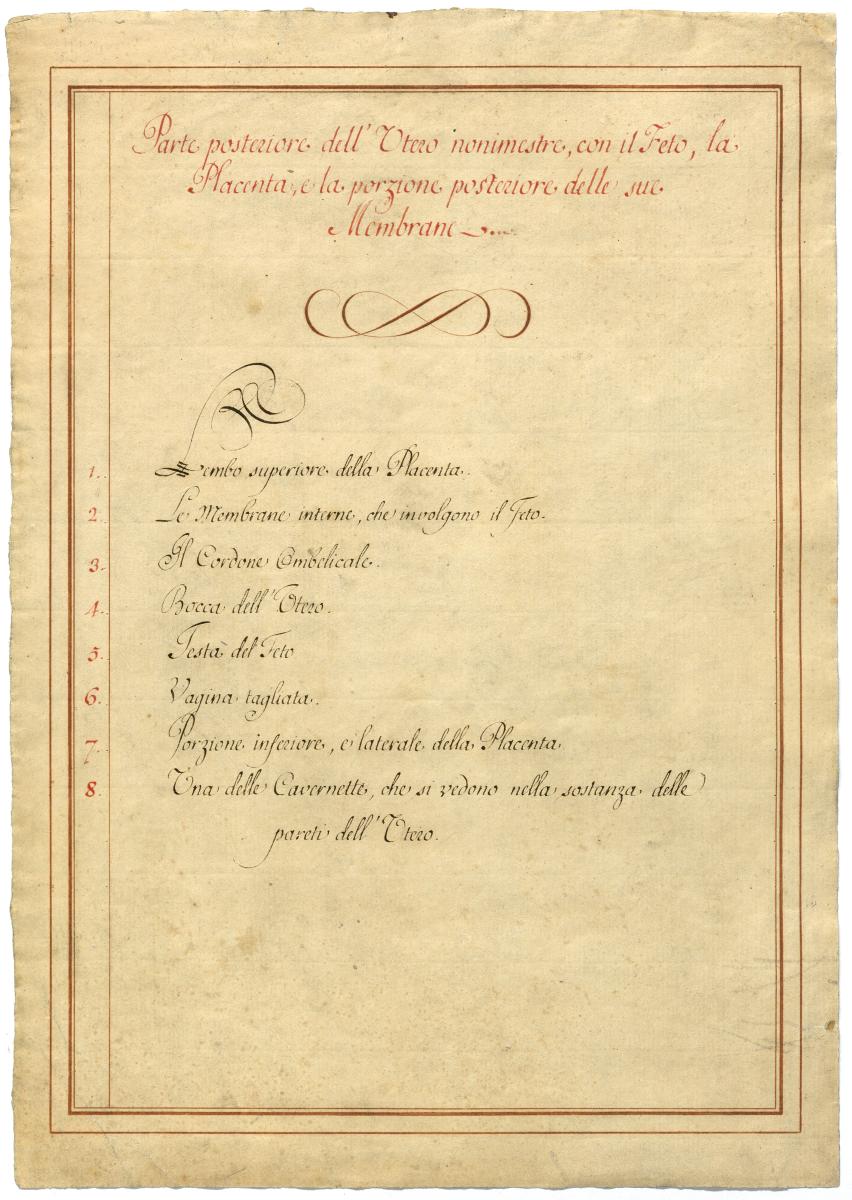 Parte posteriore dell' Utero nonimestre, con il Feto, la
Placenta, e la porzione posteriore delle sue
Membrane
1. Lembo superiore della Placenta.
2. Le Membrane interne, che involgono il Feto.
3. Il Cordone Ombelicale.
4. Bocca dell' Utero.
5. Testa del Feto
6. Vagina tagliata.
7. Porzione inferiore, e laterale della Placenta
8. Una delle Cavernette, che si vedono nella sostanza delle
pareti dell' Utero.